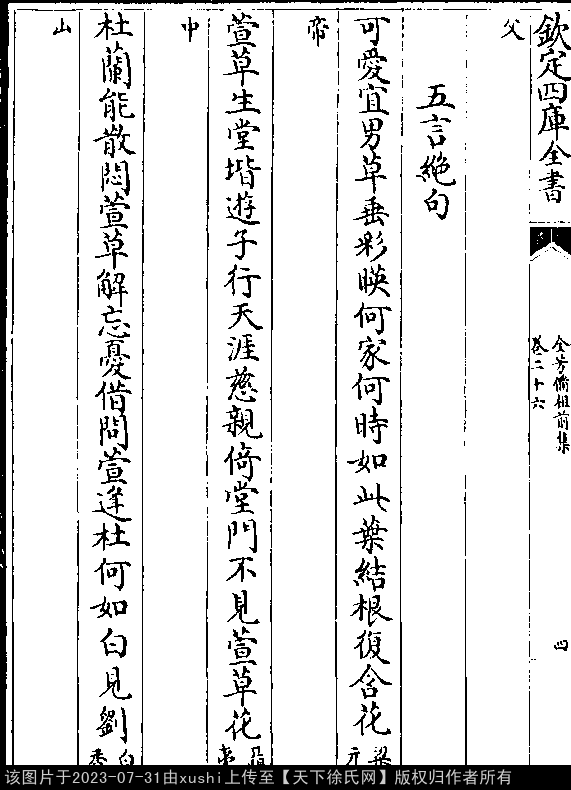 欽定四庫全書
全芳備祖前集
卷二十六
四
父
五言絶句
可愛宜男草垂彩暎何家何時如此葉結根復含花梁元
帝
萱草生堂堦遊子行天涯慈親倚堂門不見萱草花聶夷
中
杜蘭能散悶萱草解忘憂借問萱逢杜何如白見劉白香
山
该图片于2023-07-31由xushi上传至【天下徐氏网】版权归作者所有